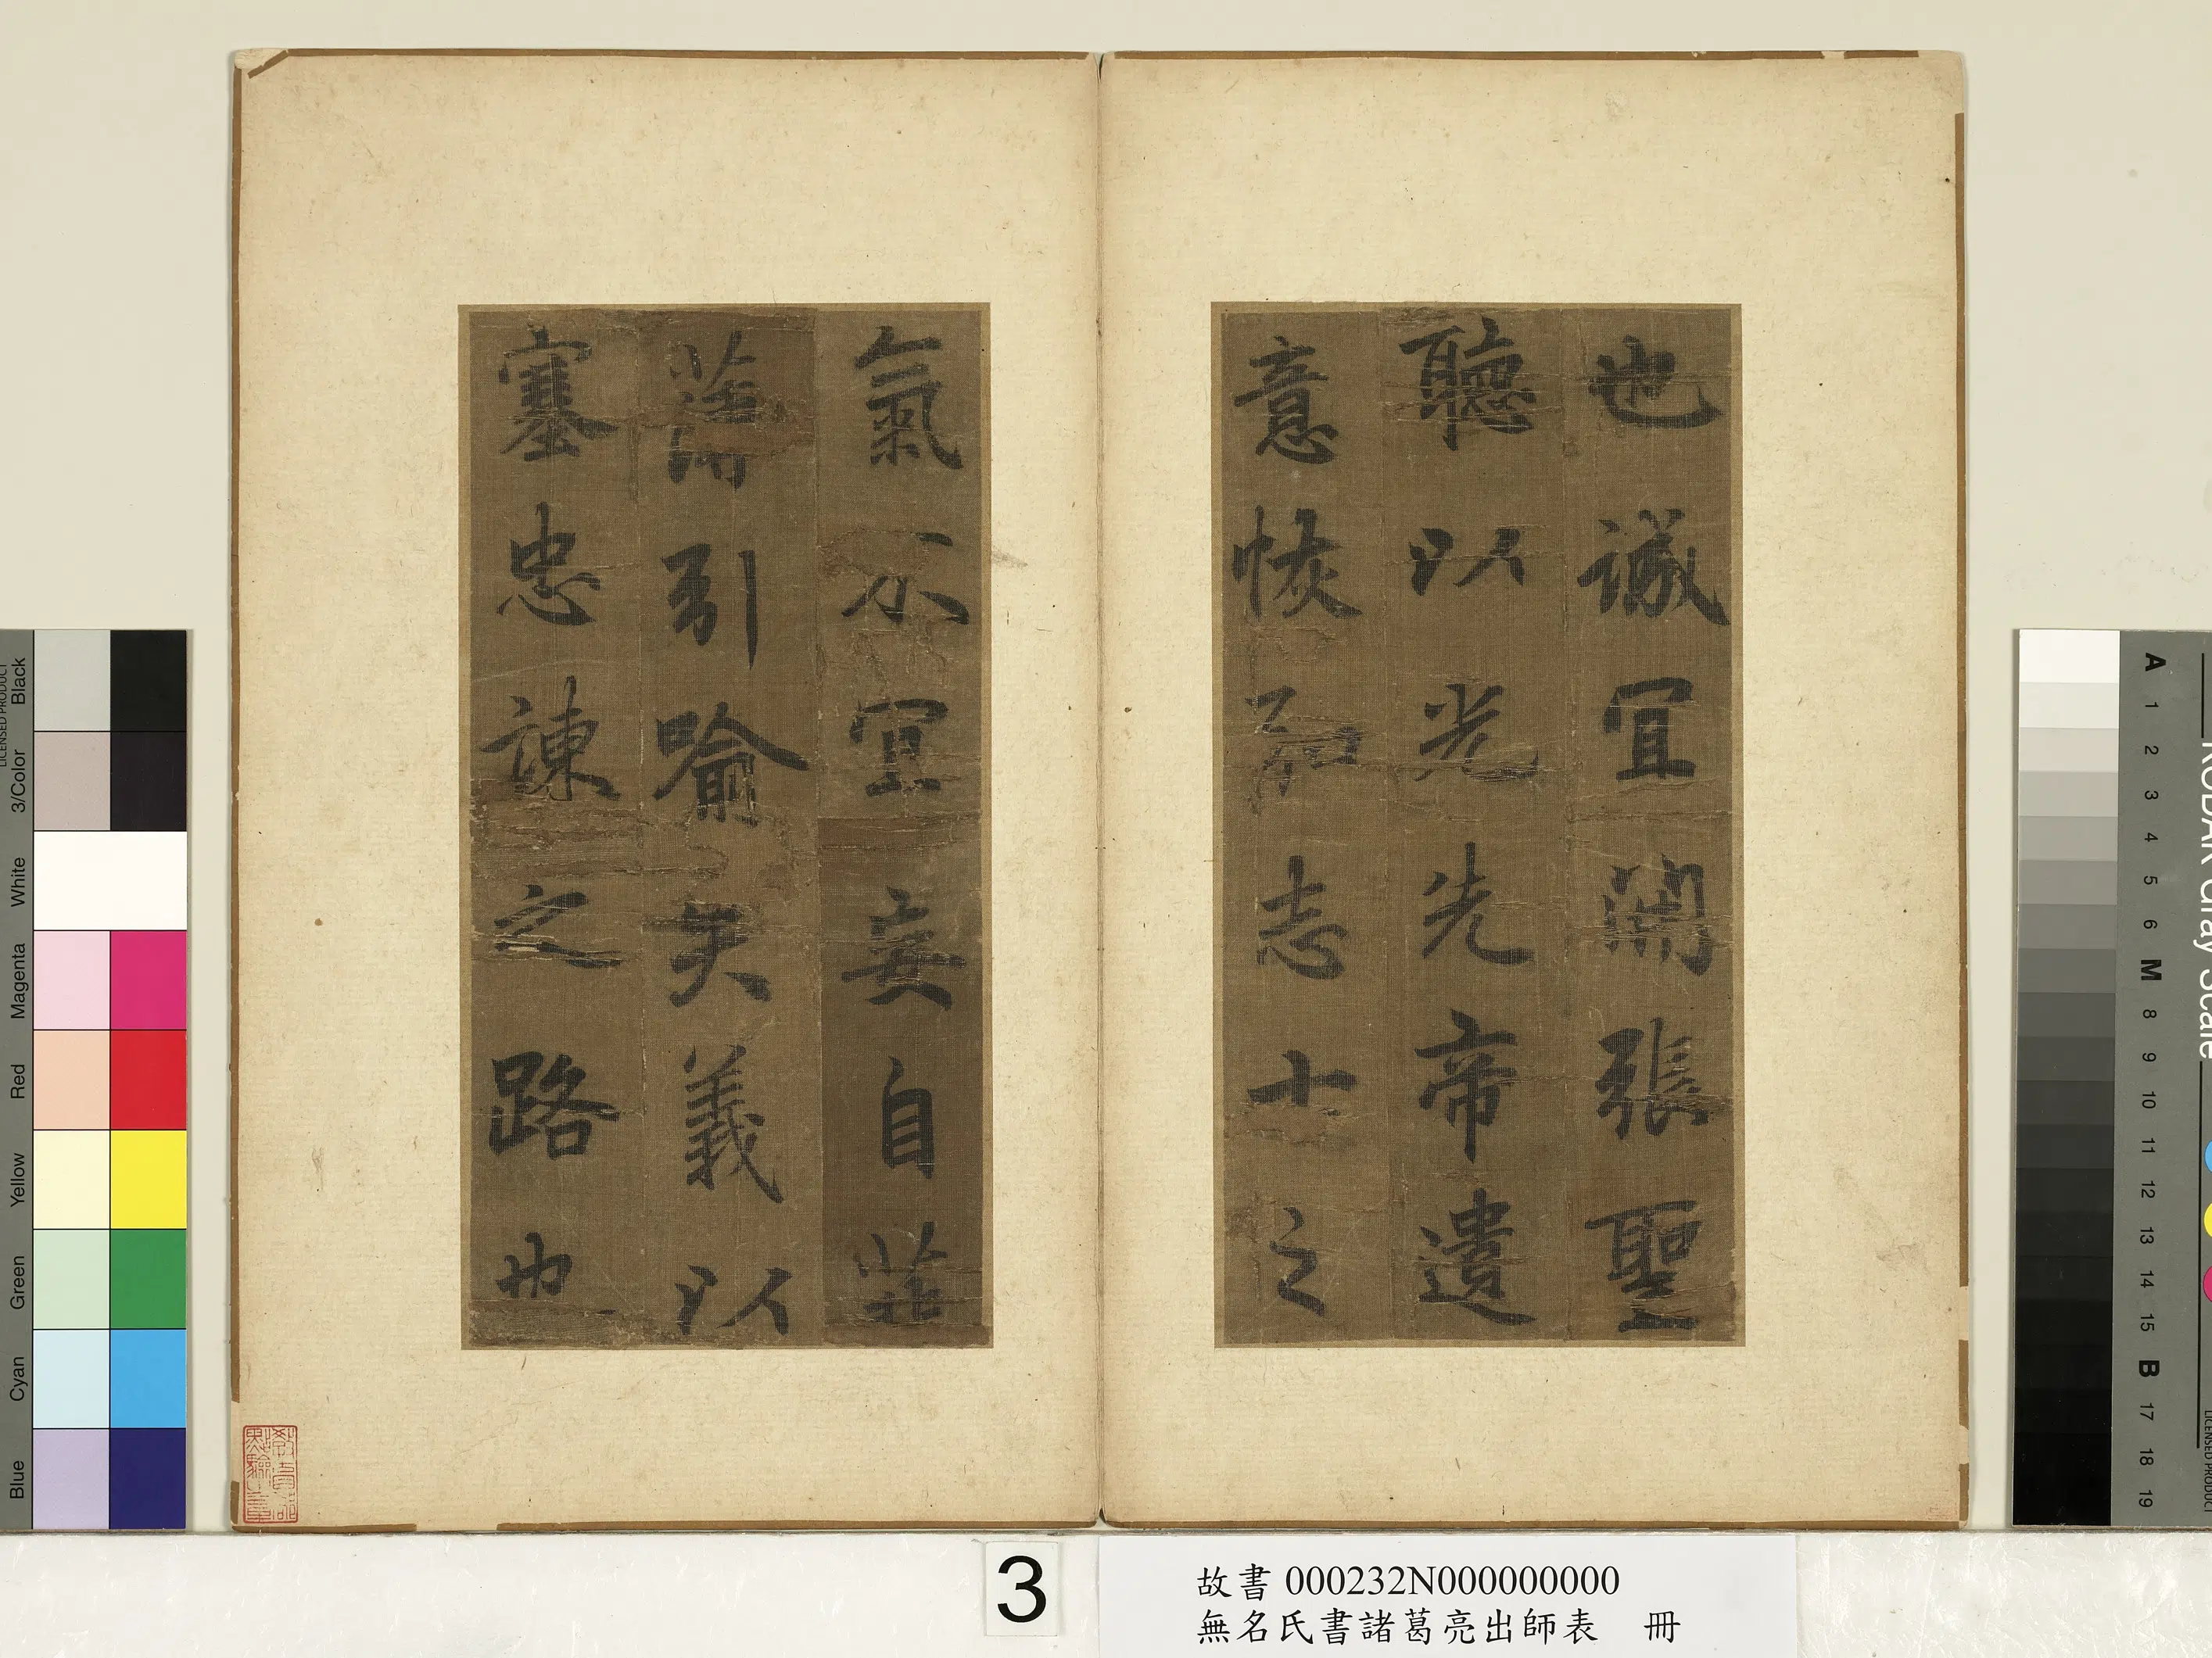 也誠宜開張聖
聽以光先帝遺
意恢弘志士之
氣不宜妄自菲
薄引喻失義以
塞忠諫之路也
3
故書 000232N000000000
無名氏書諸葛亮出師表 冊
Black
3/Color
White
Magenta
Red
Yellow
Green
Cyan
Blue
LICENSED PRODUCT
A
1
2
3
4
5
6
M
8
9
10
11
12
13
14
15
B
17
18
19
KODAK Gray Scale
LICENSED PRODUCT